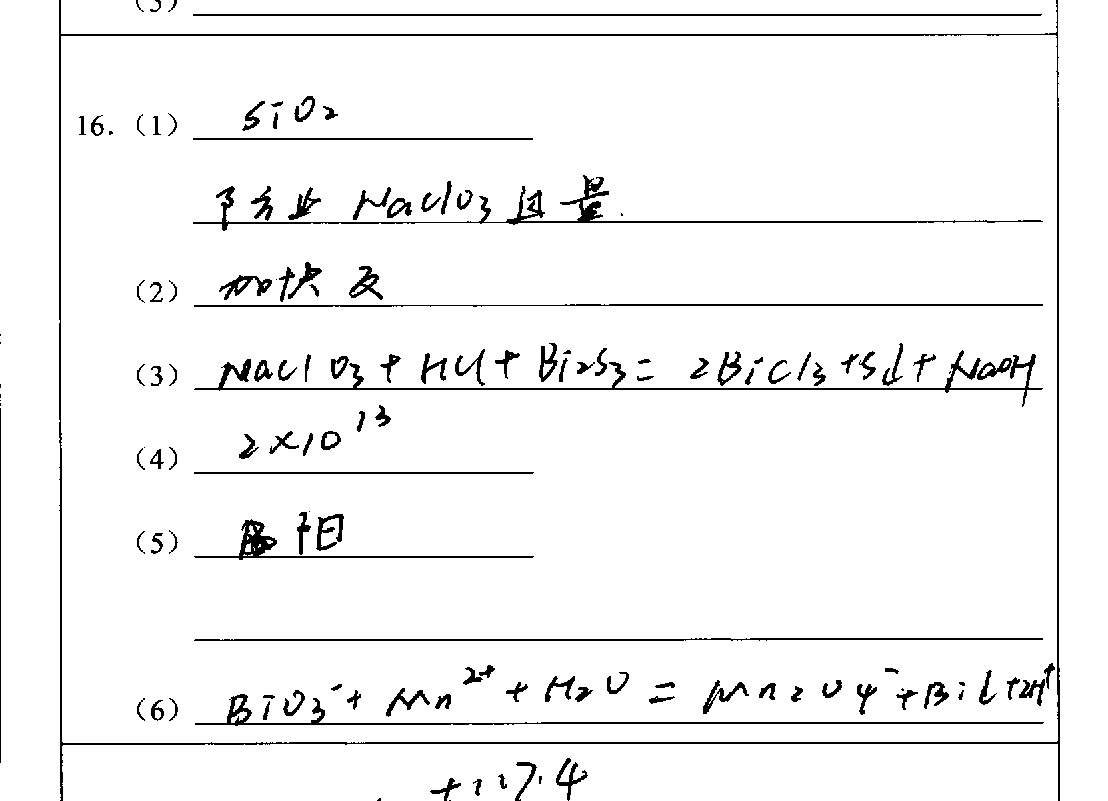 (5)
16. (1) SiO2
NaClO3 量.
(2) 加快反
(3) NaClO3 + HCl + Bi2S3 = 2BiCl3 + S↓ + NaOH
(4) 2×10^13
(5) 阳
(6) BiO3^- + Mn^2+ + H2O = Mn2O4^- + Bi↓ + 2H^+
7.4